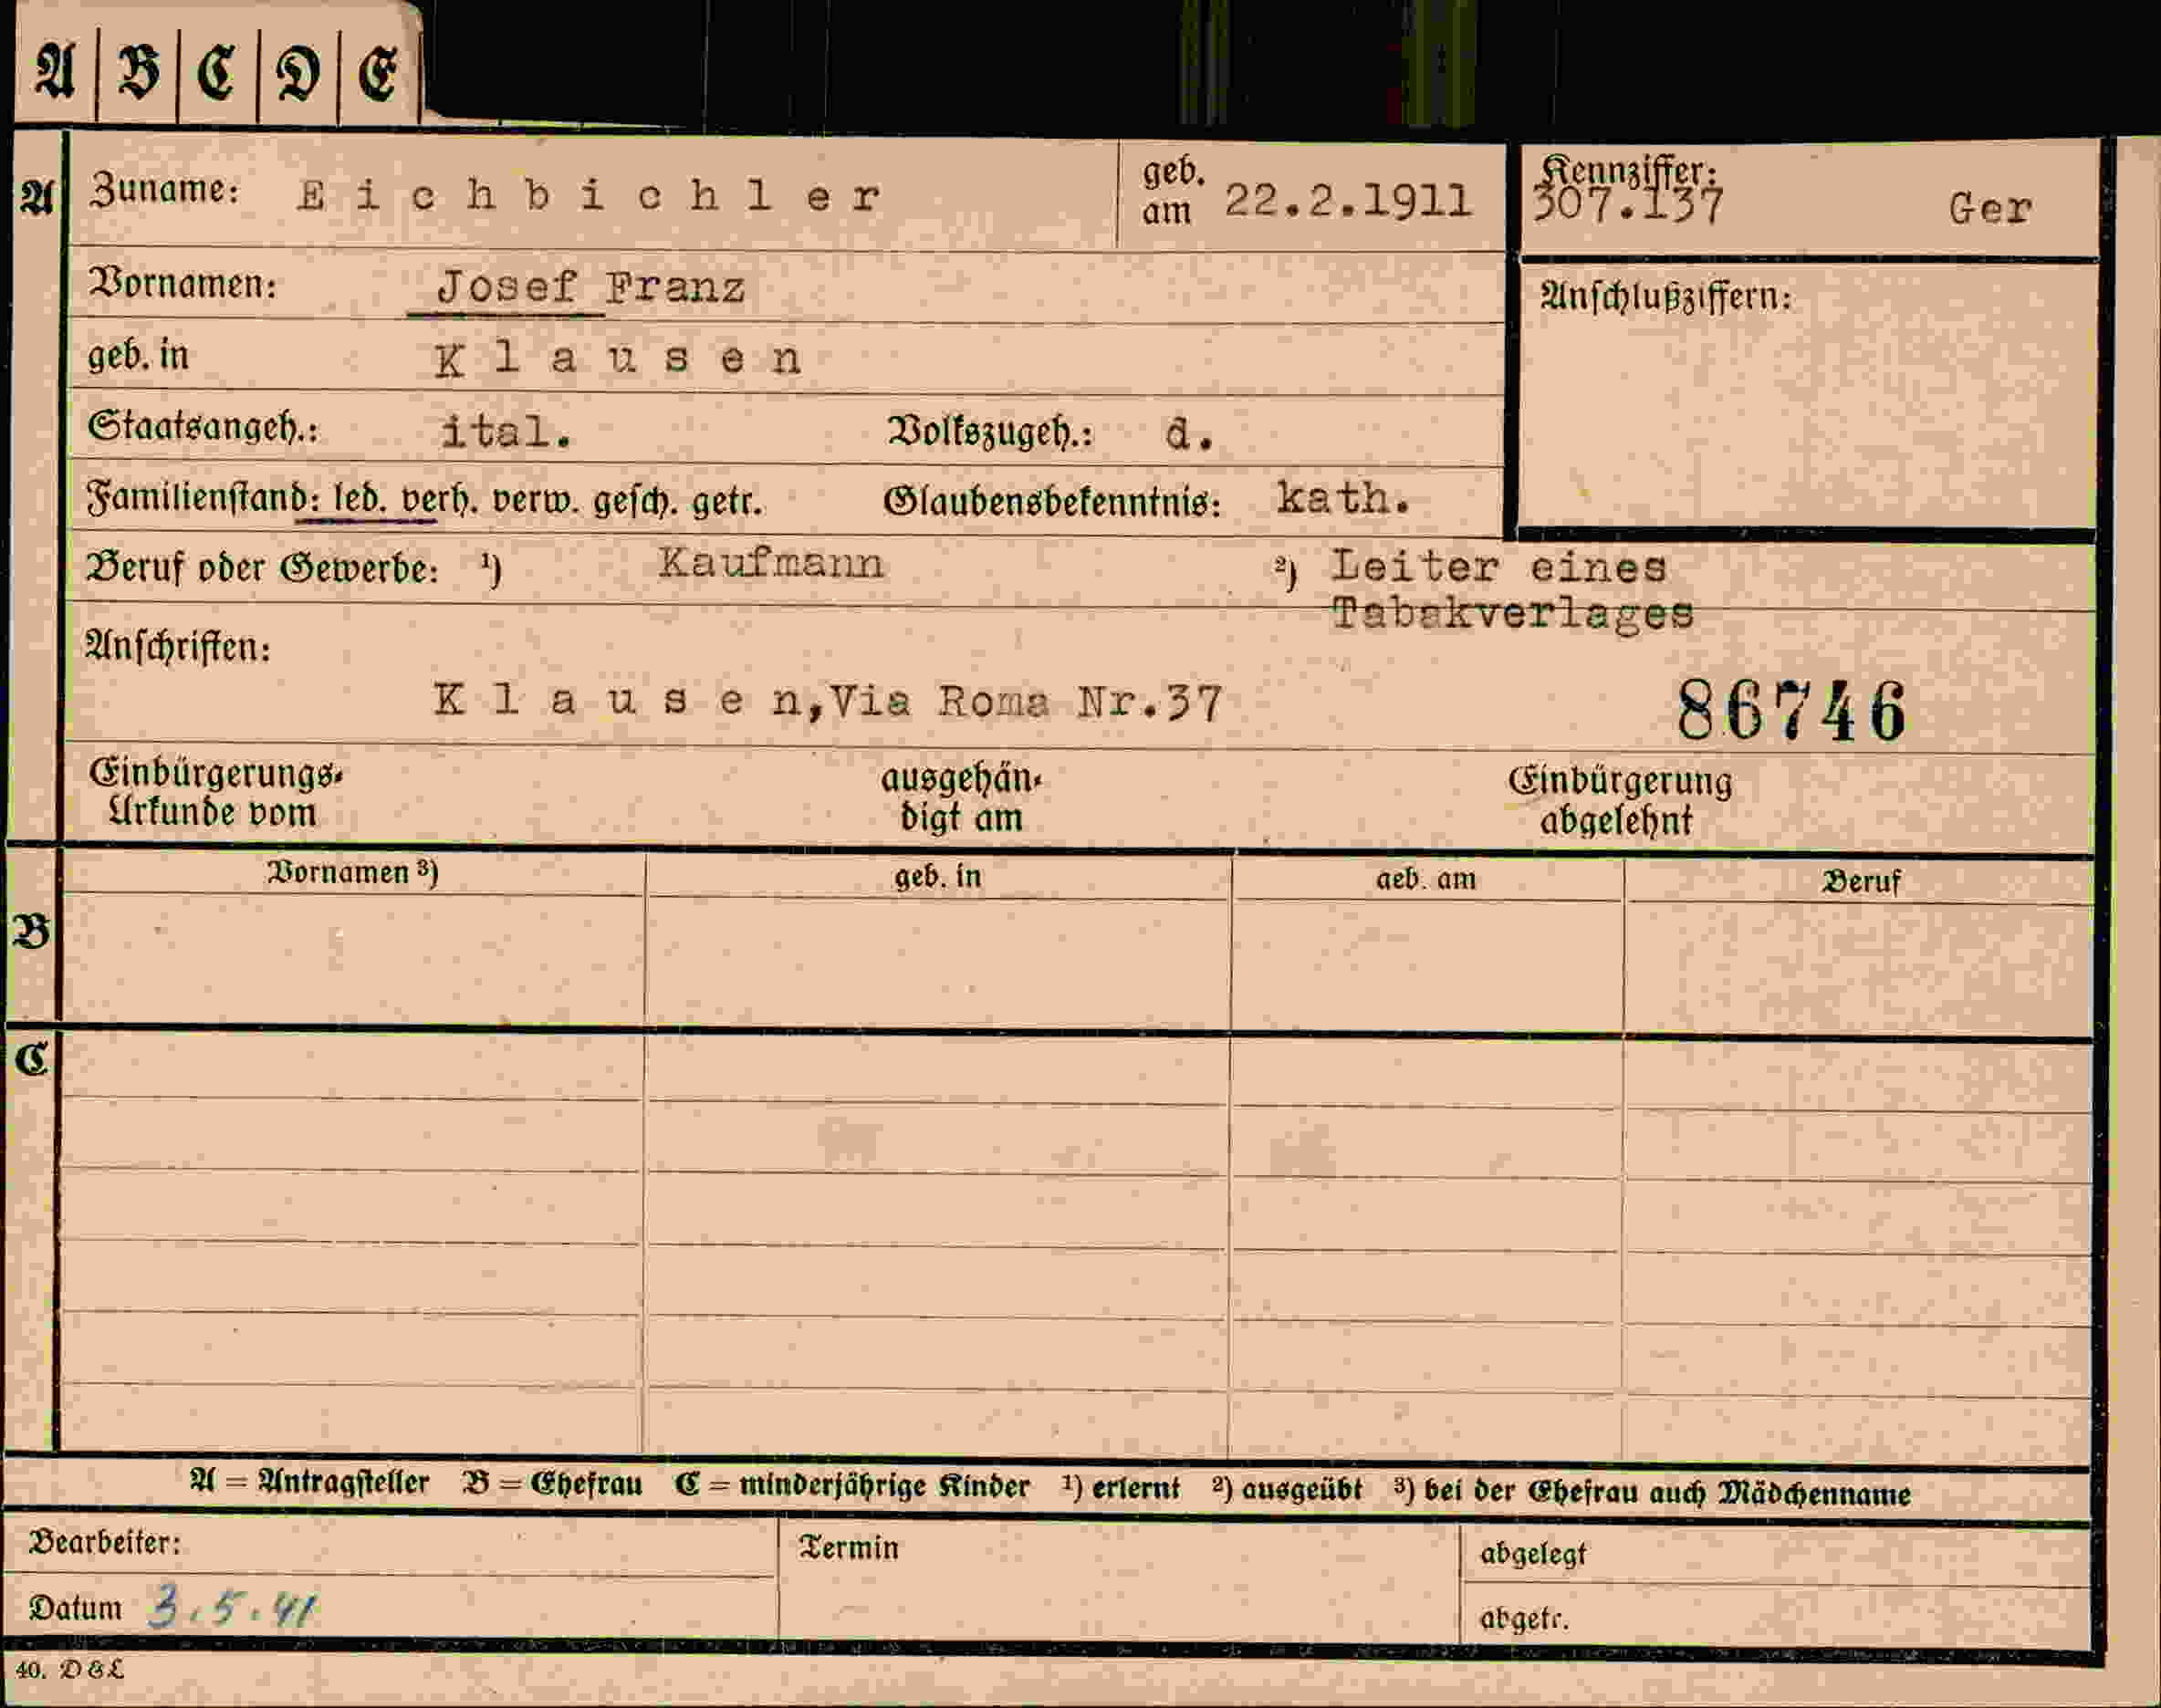 A | B | C | D | E
A Zuname: Eichbichler geb. am 22.2.1911 Kennziffer: 307.137 Ger
Vornamen: Josef Franz Anschlußziffern:
geb. in Klausen
Staatsangeh.: ital. Volkszugeh.: d.
Familienstand: led. verh. verw. gesch. getr. Glaubensbekenntnis: kath.
Beruf oder Gewerbe: ¹) Kaufmann ²) Leiter eines
Tabakverlages
Anschriften:
Klausen, Via Roma Nr.37 86746
Einbürgerungs- ausgehän- Einbürgerung
Urkunde vom digt am abgelehnt
Vornamen ³) geb. in geb. am Beruf
B
C
A = Antragsteller B = Ehefrau C = minderjährige Kinder ¹) erlernt ²) ausgeübt ³) bei der Ehefrau auch Mädchenname
Bearbeiter: Termin abgelegt
Datum 3.5.41 abgetr.
40. D & L